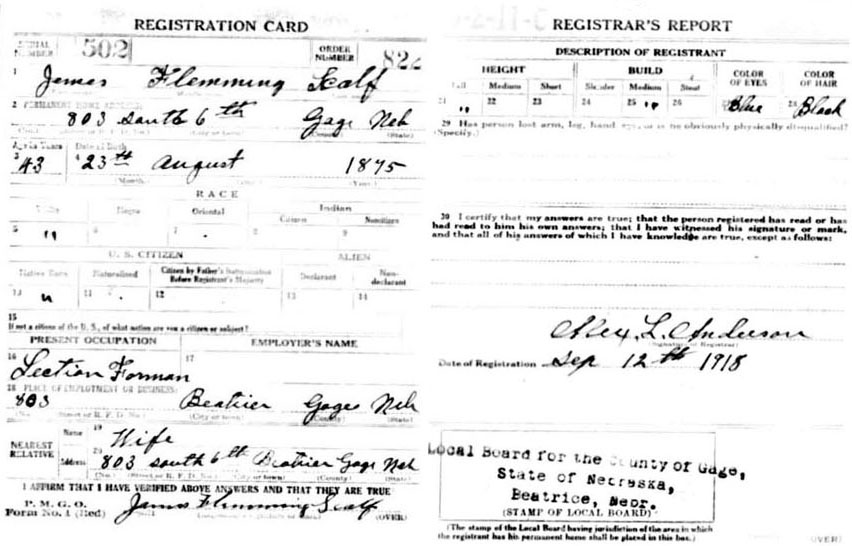 REGISTRATION CARD
SERIAL NUMBER 502 ORDER NUMBER 822
1 James Flemming Scalf
2 PERMANENT HOME ADDRESS:
803 south 6th Gage Neb
(No.) (Street or R. F. D. No.) (City or town) (County) (State)
Age in Years Date of Birth
3 43 4 23th August 1875
(Month) (Day) (Year)
RACE
White Negro Oriental Indian
Citizen Noncitizen
5 " 6 7 8 9
U. S. CITIZEN ALIEN
Native Born Naturalized Citizen by Father's Naturalization Before Registrant's Majority Declarant Non-declarant
10 11 12 13 14
15
If not a citizen of the U. S., of what nation are you a citizen or subject?
PRESENT OCCUPATION EMPLOYER'S NAME
16 17
Section Forman
18 PLACE OF EMPLOYMENT OR BUSINESS:
803 Beatrice Gage Neb
(No.) (Street or R. F. D. No.) (City or town) (County) (State)
NEAREST RELATIVE
Name 19 Wife
Address 20 803 south 6th Beatrice Gage Neb
(No.) (Street or R. F. D. No.) (City or town) (County) (State)
I AFFIRM THAT I HAVE VERIFIED ABOVE ANSWERS AND THAT THEY ARE TRUE
P. M. G. O.
Form No. 1 (Red) James Flemming Scalf (OVER)
REGISTRAR'S REPORT
DESCRIPTION OF REGISTRANT
HEIGHT BUILD COLOR OF EYES COLOR OF HAIR
Tall Medium Short Slender Medium Stout
21 " 22 23 24 25 " 26 27 Blue 28 Black
29 Has person lost arm, leg, hand, eye, or is he obviously physically disqualified?
(Specify.)
30 I certify that my answers are true; that the person registered has read or has
had read to him his own answers; that I have witnessed his signature or mark,
and that all of his answers of which I have knowledge are true, except as follows:
Alex. L. Anderson
(Signature of Registrar)
Date of Registration Sep 12th 1918
Local Board for the County of Gage,
State of Nebraska,
Beatrice, Nebr.
(STAMP OF LOCAL BOARD)
(The stamp of the Local Board having jurisdiction of the area in which
the registrant has his permanent home shall be placed in this box.)
(OVER)